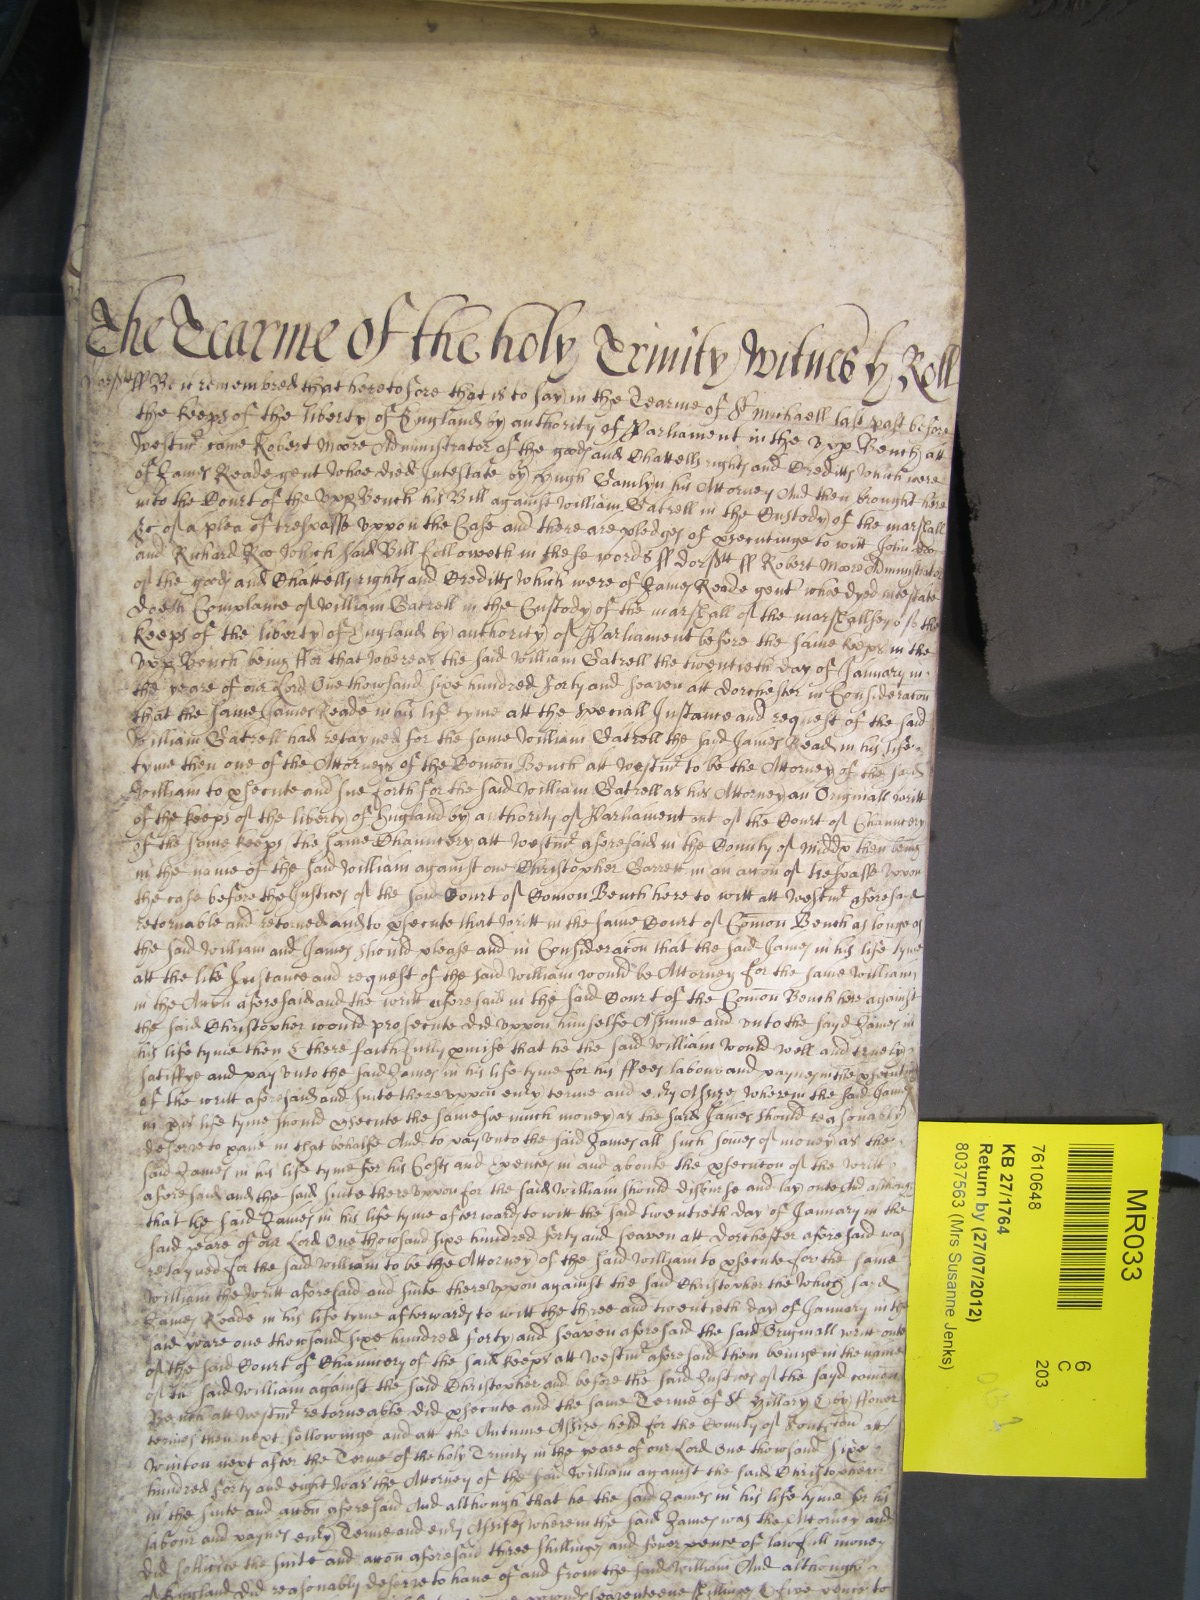 The Tearme of the holy Trinity Witnes by Roll
Dorss ff Be it remembred that heretofore that is to say in the Tearme of St Michaell last past before
the keeps of the liberty of England by authority of Parliament in the vpp Bench att
Westmr came Robert Moore Administrator of the goods and Chattells rights and Creditts which were
of James Reade gent whoe died Intestate by Hugh Gamlyn his Attorney And then brought here
into the Court of the vpp Bench his Bill against William Gatrell in the Custody of the marshall
&c of a plea of trespasse vppon the Case and there are pledges of psecutinge to witt John Doe
and Richard Roe Which said Bill followeth in these words ff Dorss ff Robert Moore Administrator
of the goods and Chattells rights and Creditts which were of James Reade gent whoe dyed intestate
doeth Complaine of William Gatrell in the Custody of the marshall of the marshallsey of the
keeps of the liberty of England by authority of Parliament before the same keeps in the
vpp Bench being ffor that whereas the said William Gatrell the twentieth day of January in
the yeare of our Lord One thowsand sixe hundred forty and seaven att Dorchester in Consideracon
that the same James Reade in his life tyme att the speciall Instance and request of the said
William Gatrell had retayned for the same William Gatrell the said James Read in his life
tyme then one of the Attorneys of the Comon Bench att Westmr to be the Attorney of the said
William to psecute and sue forth for the said William Gatrell as his Attorney an Originall writt
of the keeps of the liberty of England by authority of Parliament out of the Court of Chauncery
of the same keeps the same Chauncery att Westmr aforesaid in the County of Middx then being
in the name of the said William against one Christopher Garrett in an accon of trespasse vppon
the case before the Justices of the said Court of Comon Bench here to witt att Westmr aforesaid
retornable and retorned and to psecute that writt in the same Court of Comon Bench as longe as
the said William and James should please and in Consideracon that the said James in his life tyme
att the like Instance and request of the said William would be Attorney for the same William
in the Accon aforesaid and the writt aforesaid in the said Court of the Comon Bench here against
the said Christopher would prosecute did vppon himselfe Assume and vnto the sayd James in
his life tyme then & there faithfully pmise that he the said William would well and truely
satisfye and pay vnto the said James in his life tyme for his ffees labour and paynes in the psecution
of the writt aforesaid and suite therevppon euy terme and euy Assize wherein the said James
in his life tyme should psecute the same soe much money as the said James should reasonably
deserve to haue in that behalfe And to pay vnto the said James all such somes of money as the
said James in his life tyme for his Costs and Expences in and aboute the psecution of the writt
aforesaid and the said suite therevppon for the said William should disburse and lay oute And although
that the said James in his life tyme afterwards to witt the said twentieth day of January in the
said yeare of our Lord One thowsand sixe hundred forty and seaven att Dorchester aforesaid was
retayned for the said William to be the Attorney of the said William to psecute for the same
William the writt aforesaid and suite therevppon against the said Christopher the which said
James Reade in his life tyme afterwards to witt the three and twentieth day of January in the
said yeare one thowsand sixe hundred forty and seaven aforesaid the said Originall writt oute
of the said Court of Chauncery of the said keeps att Westmr aforesaid then beinge in the name
of the said William against the said Christopher and before the said Justices of the sayd comon
Bench att Westmr retorneable did psecute and the same Terme of St Hillary & by flower
termes then next followinge and att the Autume Assize held for the County of att
Winton next after the Terme of the holy Trinity in the yeare of our Lord One thowsand sixe
hundred forty and eight was the Attorney of the said William against the said Christopher
in the suite and accon aforesaid And although that he the said James in his life tyme for his
labour and paynes euy Terme and euy Assizes wherein the said James was the Attorney and
did sollicite the suite and accon aforesaid three shillings and fower pence of lawfull money
of England did reasonably deserve to haue of and from the said William And although
seaventeene shillings & five pence to
MR033
7610648
6
C
203
KB 27/1764
Return by (27/07/2012)
8037563 (Mrs Susanne Jenks)